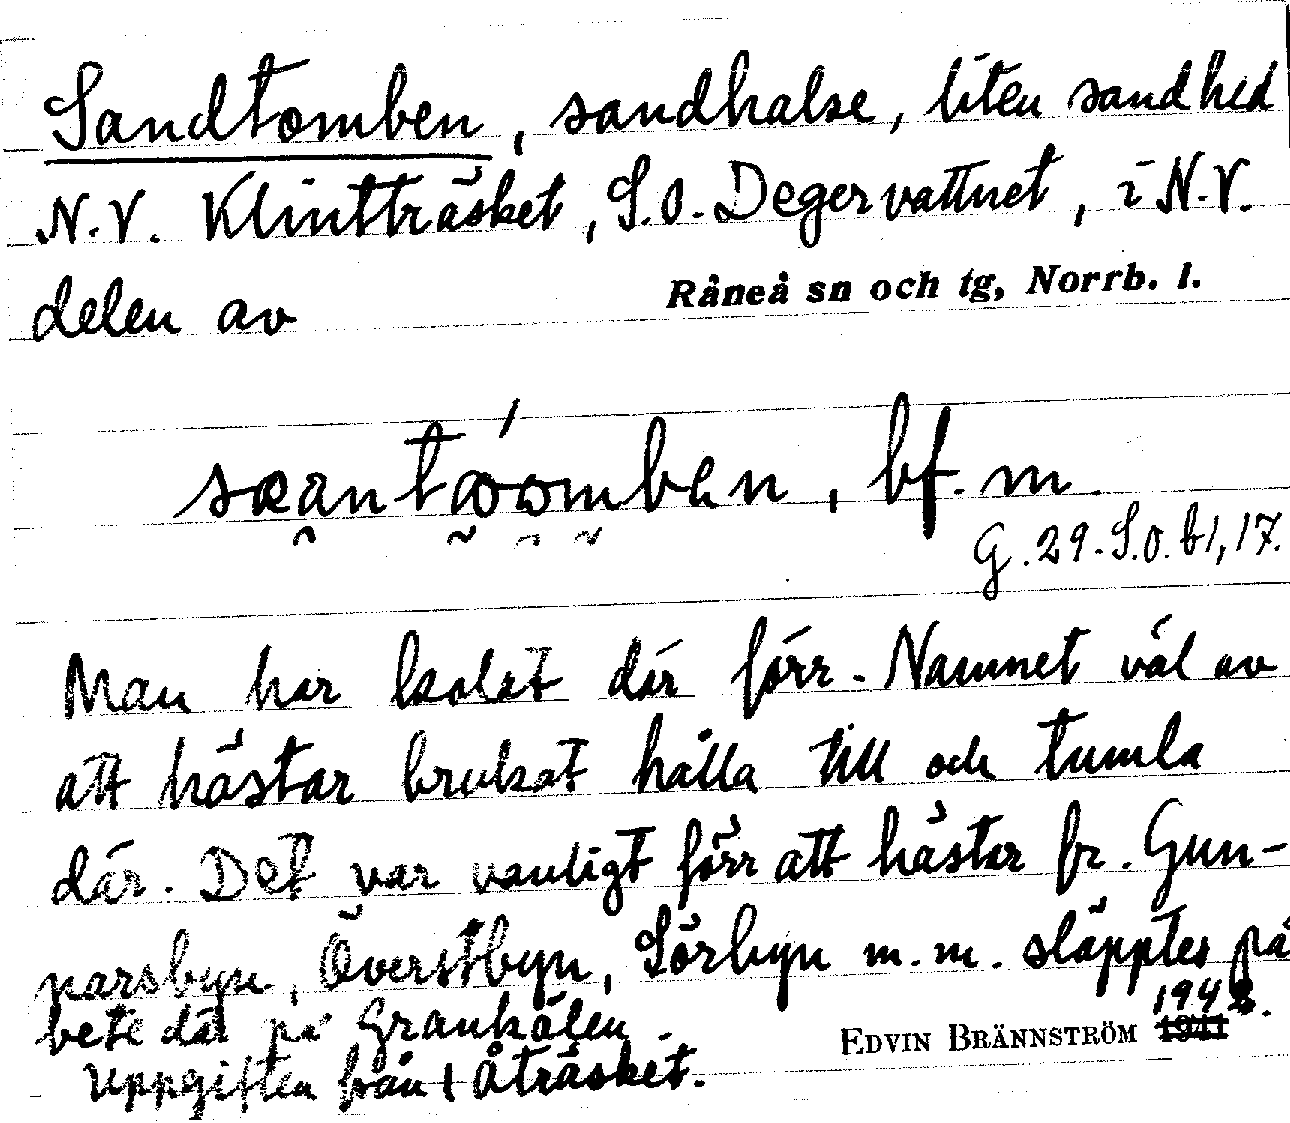 Sandtomben, sandhalse, liten sandhed
N.V. Klintträsket, S.O. Degervattnet, i N.V.
delen av Råneå sn och tg, Norrb. l.
bf. m.
G. 29. S.O. b1, 17.
Man har kolat där förr. Namnet väl av
att hästar brukat hålla till och tumla
där. Det var vanligt förr att hästar fr. Gun-
narsbyn, Överstbyn, Sörbyn m.m. släpptes på
bete där på Grankälen.
EDVIN BRÄNNSTRÖM 1941 1942.
Uppgiften från Åträsket.